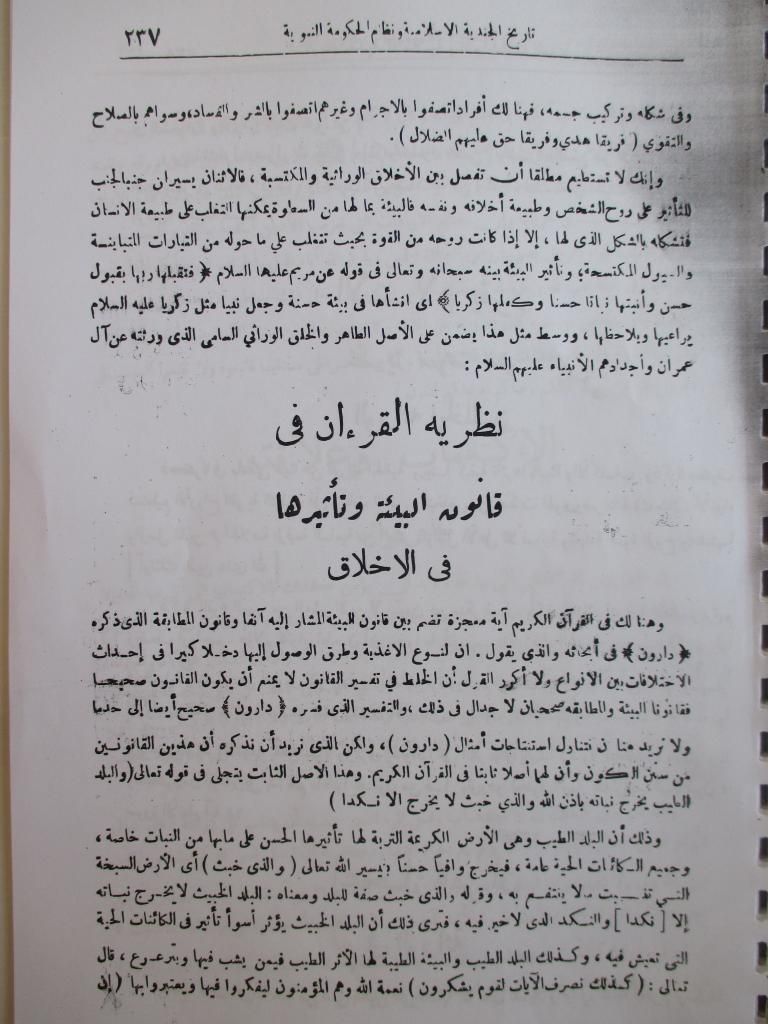 تاريخ الجندية الاسلامية ونظام الحكومة النبوية ٢٣٧
وفى شكله وتركيب جسمه، فهنا لك أفراد اتصفوا بالاجرام وغيرهم اتصفوا بالشر والفساد، وسواهم بالصلاح
والتقوي ( فريقا هدي وفريقا حق عليهم الضلال ) .
وإنك لا تستطيع مطلقا أن تفصل بين الأخلاق الوراثية والمكتسبة ، فالاثنان يسيران جنبا لجنب
للتأثير على روح الشخص وطبيعة أخلاقه ونفسه فالبيئة بما لها من السطوة يمكنها التغلب على طبيعة الانسان
فتشكله بالشكل الذى لها ، إلا إذا كانت روحه من القوة بحيث تتغلب علي ما حوله من التيارات المتباينة
والسيول المكتسحة؛ وتأثير البيئة بينه سبحانه وتعالى فى قوله عن مريم عليها السلام ﴿ فتقبلها ربها بقبول
حسن وأنبتها نباتا حسنا وكفلها زكريا ﴾ اى انشأها فى بيئة حسنة وجعل نبيا مثل زكريا عليه السلام
يراعيها ويلاحظها ، ووسط مثل هذا يضمن على الأصل الطاهر والخلق الوراثي السامى الذى ورثته عن آل
عمران وأجدادهم الأنبياء عليهم السلام :
نظريه القرءان فى
قانون البيئة وتأثيرها
فى الاخلاق
وهنا لك فى القرآن الكريم آية معجزة تضم بين قانون البيئة المشار إليه آنفا وقانون المطابقة الذى ذكره
﴿ دارون ﴾ فى أبحاثه والذي يقول . ان لنوع الاغذية وطرق الوصول إليها دخلا كبيرا فى إحداث
الاختلافات بين الانواع ولا أكرر القول أن الخلط في تفسير القانون لا يمنع أن يكون القانون صحيحا
فقانونا البيئة والمطابقه صحيحان لا جدال فى ذلك ،والتفسير الذى فسره ﴿ دارون ﴾ صحيح أيضا إلى حد ما
ولا نريد هنا ان نتناول استنتاجات أمثال ( دارون )، ولكن الذى نريد أن نذكره أن هذين القانونين
من سنن الكون وأن لهما أصلا ثابتا فى القرآن الكريم. وهذا الاصل الثابت يتجلى فى قوله تعالى (والبلد
الطيب يخرج نباته باذن الله والذي خبث لا يخرج الا نكدا )
وذلك أن البلد الطيب وهى الأرض الكريمة التربة لها تأثيرها الحسن على ما بها من النبات خاصة ،
وجميع الكائنات الحية عامة ، فيخرج وافياً حسناً بتيسير الله تعالى ( والذى خبث ) أى الأرض السبخة
التى تنبت ملا ينتفع به ، وقوله والذى خبث صفة للبلد ومعناه : البلد الخبيث لا يخرج نباته
إلا [ نكدا ] والنكد الذى لا خير فيه ، فترى ذلك أن البلد الخبيث يؤثر أسوأ تأثير فى الكائنات الحية
التى تعيش فيه ، وكذلك البلد الطيب والبيئة الطيبة لها الأثر الطيب فيمن يشب فيها ويترعرع ، قال
تعالى : ( كذلك نصرف الآيات لقوم يشكرون ) نعمة الله وهم المؤمنون ليفكروا فيها ويعتبروا بها ( إن